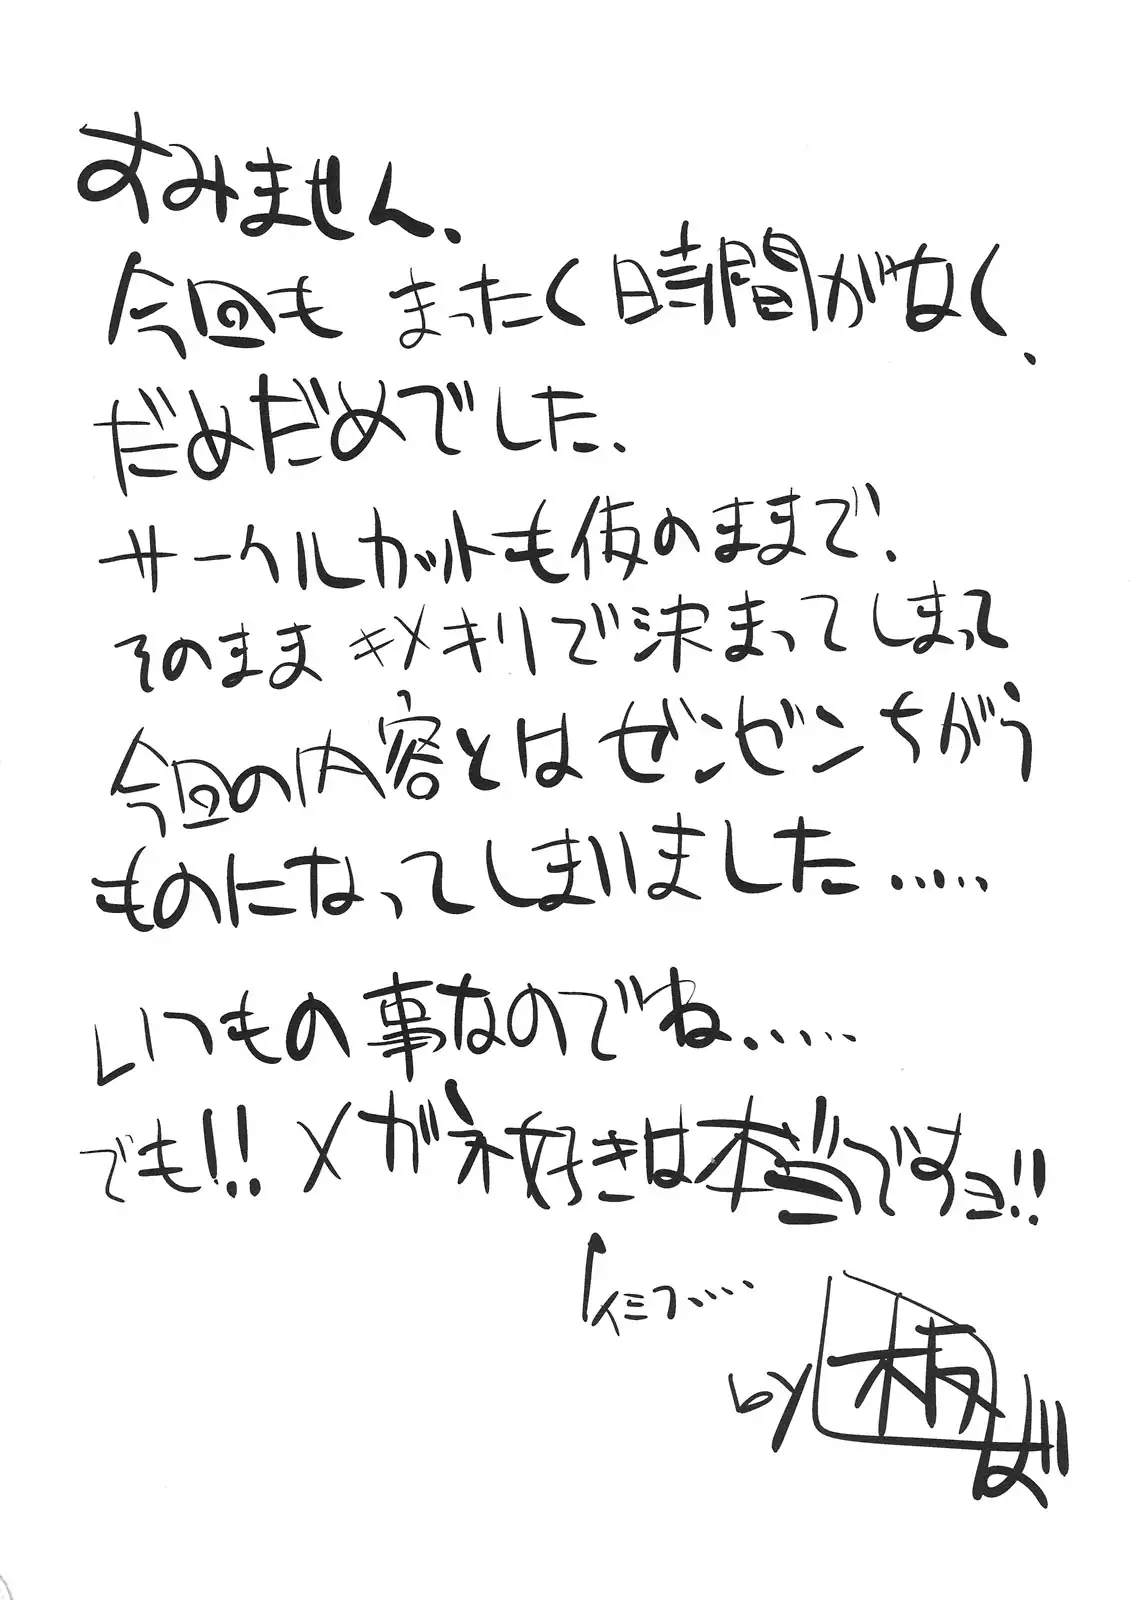 すみません.
今回も まったく時間がなく.
だめだめでした.
サークルカットも仮のままで.
そのままキメキリで決まってしまって
今回の内容とはゼンゼンちがう
ものになってしまいました.....
いつもの事なのでね.....
でも!! メガネ好きは本当ですョ!!
イミフ....
by